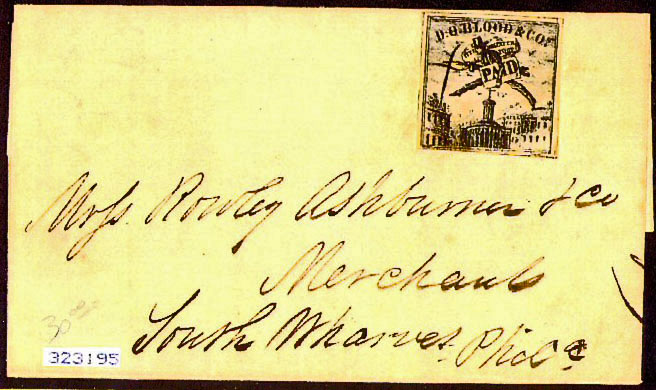 D.O. BLOOD & CO'S
PAID
Messrs. Rowley Ashburner & Co
Merchants
South Wharves Phila
30.00
323195